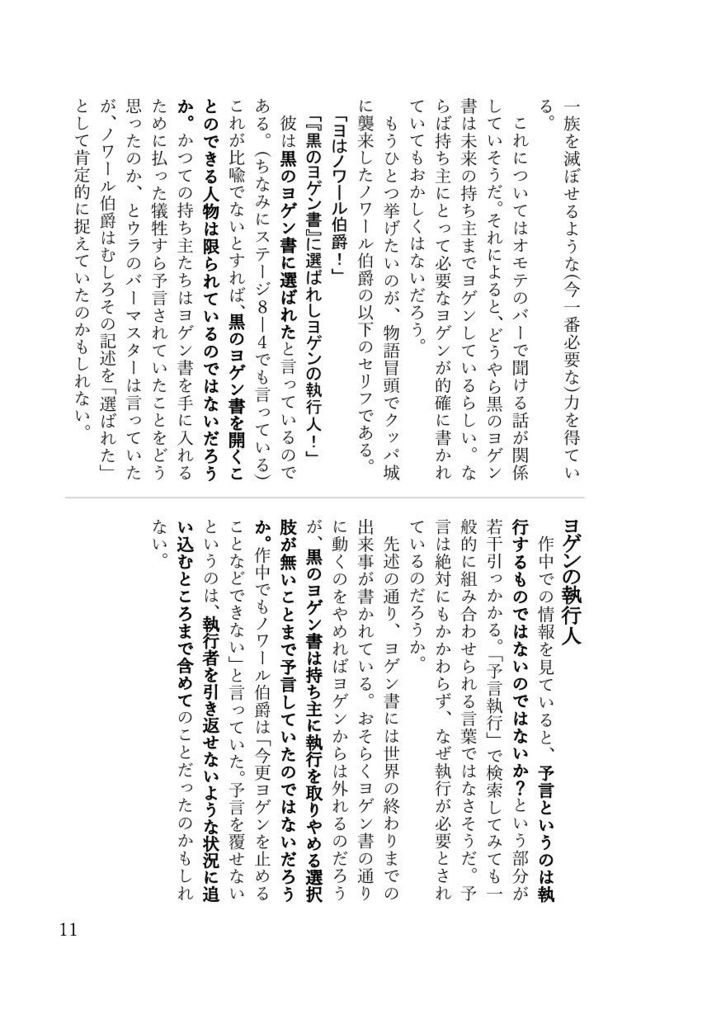 一族を滅ぼせるような(今一番必要な)力を得てい
る。
　これについてはオモテのバーで聞ける話が関係
していそうだ。それによると、どうやら黒のヨゲン
書は未来の持ち主までヨゲンしているらしい。な
らば持ち主にとって必要なヨゲンが的確に書かれ
ていてもおかしくはないだろう。
　もうひとつ挙げたいのが、物語冒頭でクッパ城
に襲来したノワール伯爵の以下のセリフである。
「ヨはノワール伯爵！」
「『黒のヨゲン書』に選ばれしヨゲンの執行人！」
　彼は黒のヨゲン書に選ばれたと言っているので
ある。(ちなみにステージ８―４でも言っている)
これが比喩でないとすれば、黒のヨゲン書を開くこ
とのできる人物は限られているのではないだろう
か。かつての持ち主たちはヨゲン書を手に入れる
ために払った犠牲すら予言されていたことをどう
思ったのか、とウラのバーマスターは言っていた
が、ノワール伯爵はむしろその記述を「選ばれた」
として肯定的に捉えていたのかもしれない。
ヨゲンの執行人
　作中での情報を見ていると、予言というのは執
行するものではないのではないか？という部分が
若干引っかかる。「予言執行」で検索してみても一
般的に組み合わせられる言葉ではなさそうだ。予
言は絶対にもかかわらず、なぜ執行が必要とされ
ているのだろうか。
　先述の通り、ヨゲン書には世界の終わりまでの
出来事が書かれている。おそらくヨゲン書の通り
に動くのをやめればヨゲンからは外れるのだろう
が、黒のヨゲン書は持ち主に執行を取りやめる選択
肢が無いことまで予言していたのではないだろう
か。作中でもノワール伯爵は「今更ヨゲンを止める
ことなどできない」と言っていた。予言を覆せない
というのは、執行者を引き返せないような状況に追
い込むところまで含めてのことだったのかもしれ
ない。
11